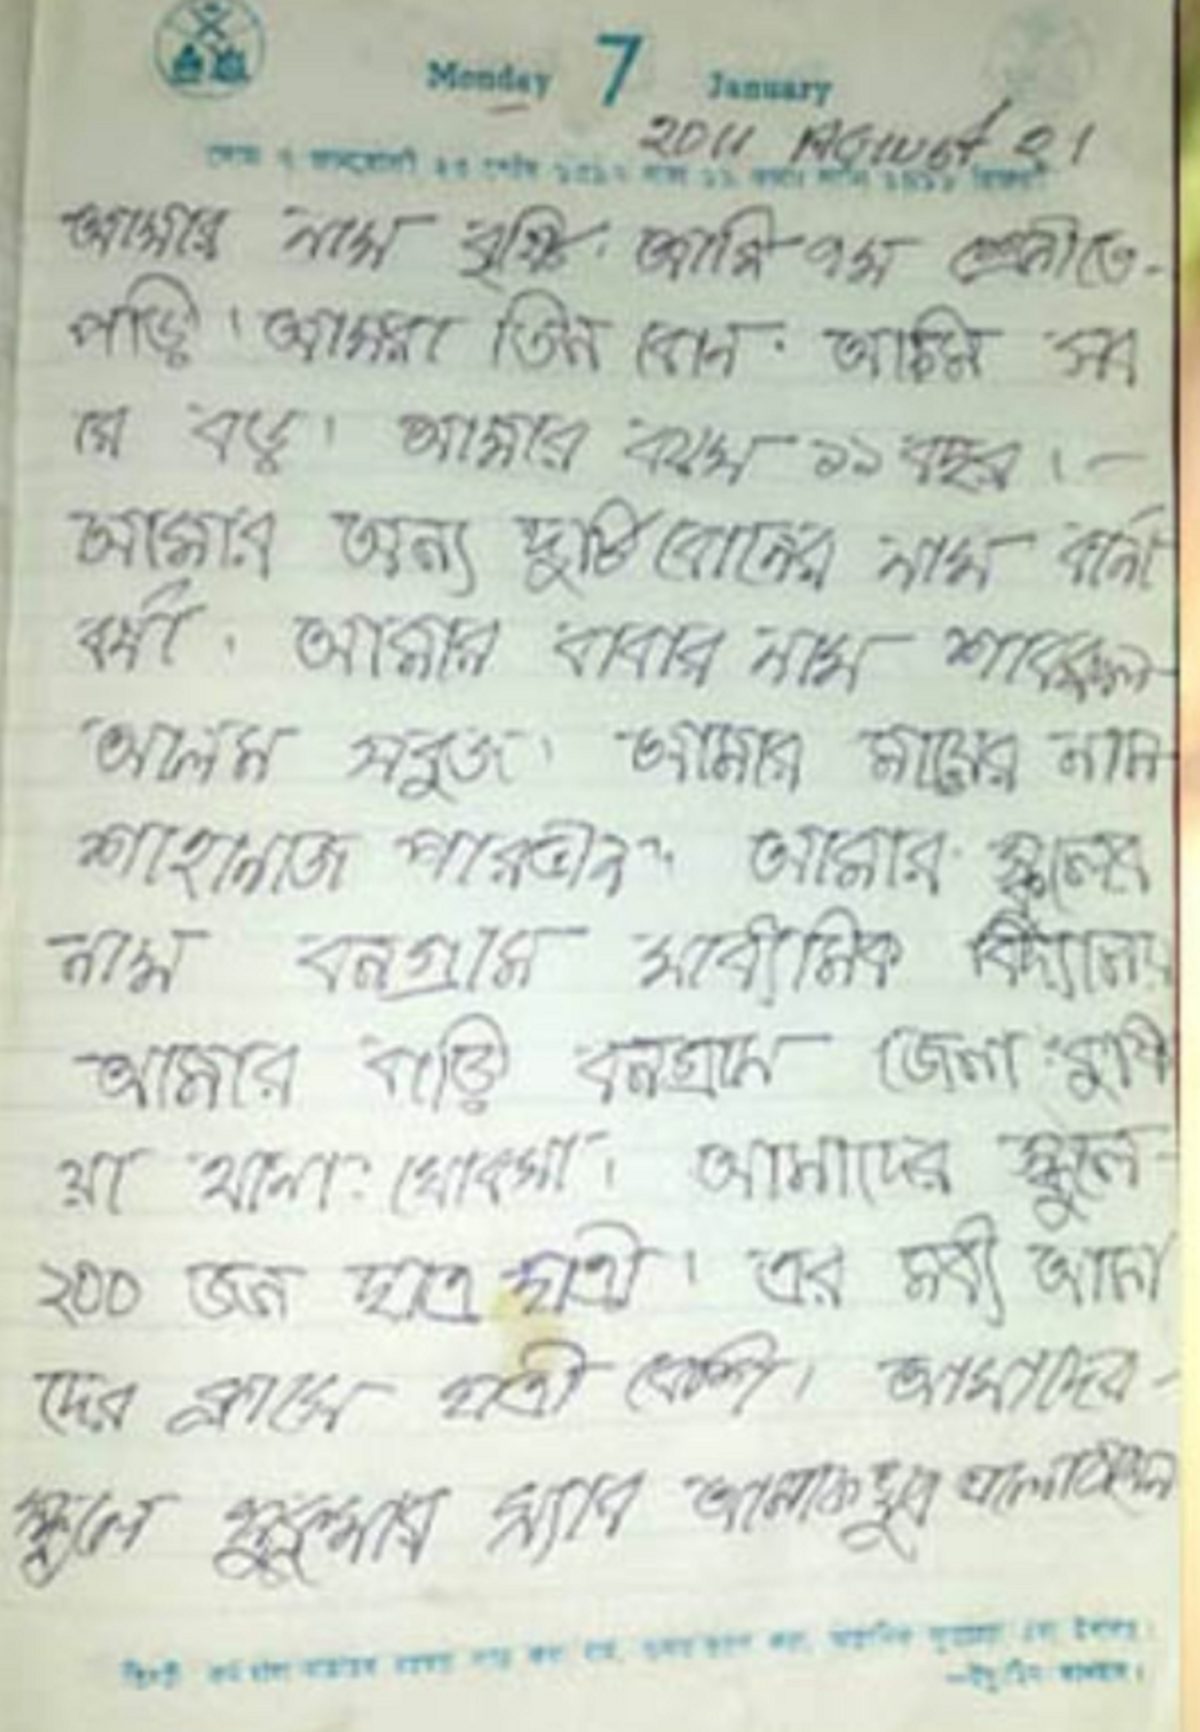 Monday 7 January
2011 August 21
আমার নাম বৃষ্টি। আমি ৭ম শ্রেনীতে-
পড়ি। আমরা তিন বোন। আমি সব
বড়। আমার বয়স ১১ বছর।-
আমার অন্য দুটি বোনের নাম বর্না
বর্ষা। আমার বাবার নাম
আলম সবুজ। আমার মায়ের নাম
শাহানাজ পারভীন। আমার স্কুলের
নাম বনগ্রাম মাধ্যমিক বিদ্যালয়
আমার বাড়ি বনগ্রাম জেলা: কুষ্টি
য়া থানা: খোকসা। আমাদের স্কুলে-
২০০ জন ছাত্র ছাত্রী। এর মধ্যে আমা
দের ক্লাসে ছাত্রী বেশি। আমাদের-
স্কুলে স্যার আমাকে খুব